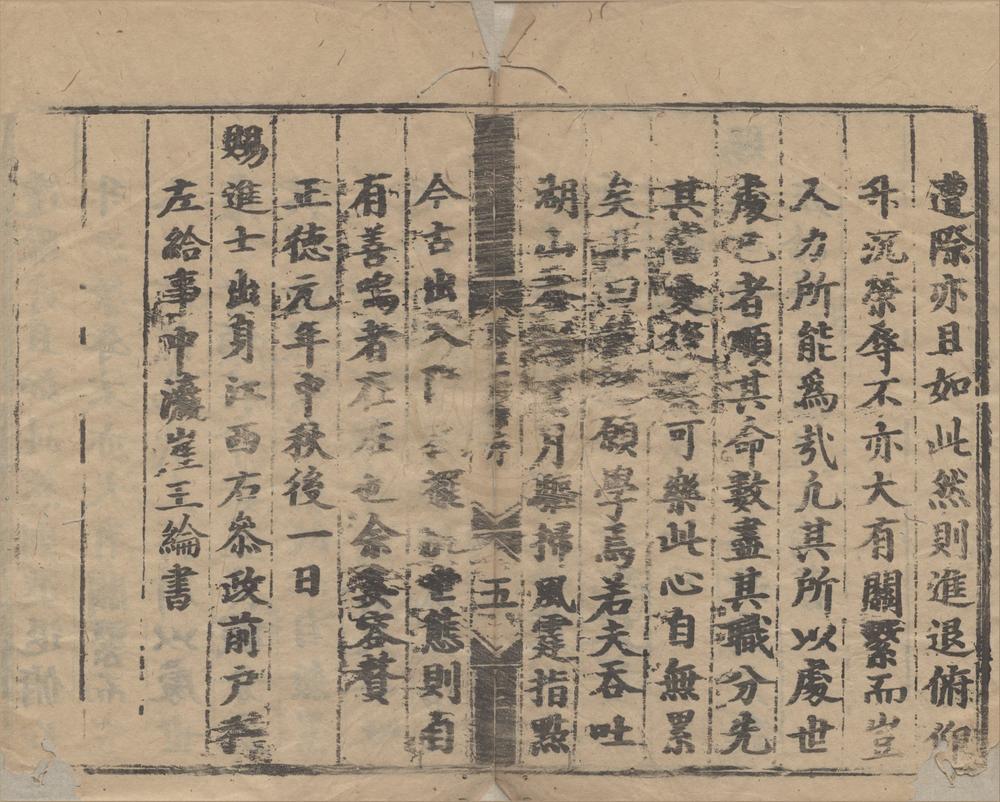 遭際亦且如此然則進退俯仰
升沉榮辱不亦大有關繫而豈
人力所能爲哉凢其所以處世
處已者順其命數盡其職分先
其當憂後可樂此心自無累
矣 曰 願學焉若夫吞吐
湖山 月 掃風霆指點
今古出入 世態則自
有善鳴者在在也余奚容贅
正德元年中秋後一日
賜進士出身江西右叅政前戶科
左給事中濱崖王綸書
五